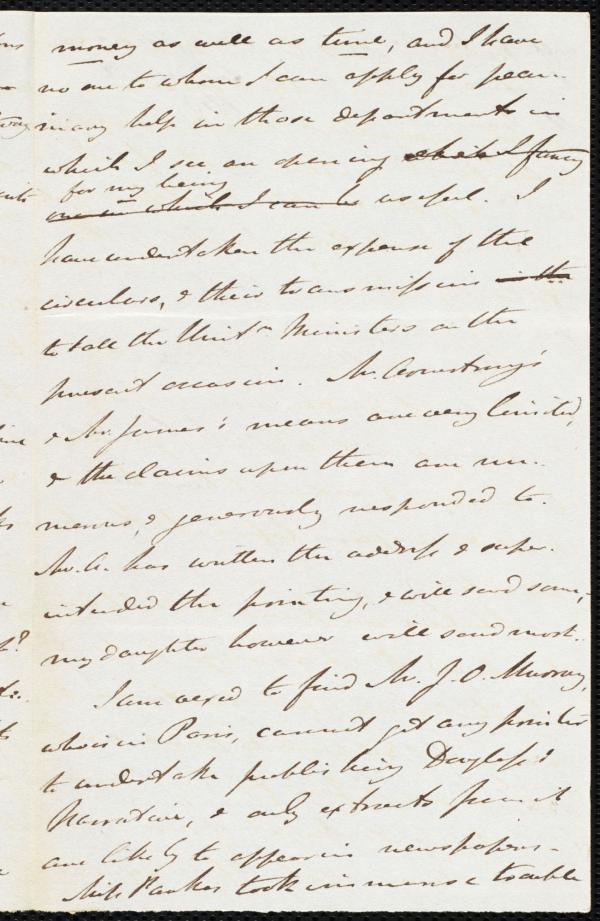 money as well as time, and I have
no one to whom I can apply for pecu-
niary help in those departments in
which I see an opening which I fancy
for my being
one in which I can be useful. I
have undertaken the expense of the
circulars, & their transmission in the
to all the Unitn. Ministers on the
present occasion. Mr. Armstrong's
& Mr. James's means are very limited,
& the claims upon them are nu-
merous, & generously responded to.
Mr. A. has written the address & super-
intended the printing, & will send some,
my daughter however will send most.
I am vexed to find Mr. J. O. Murray,
who is in Paris, cannot get any printer
to undertake publishing Douglass's
Narrative, & only extracts from it
are likely to appear in newspapers-
Miss Parker took immense trouble